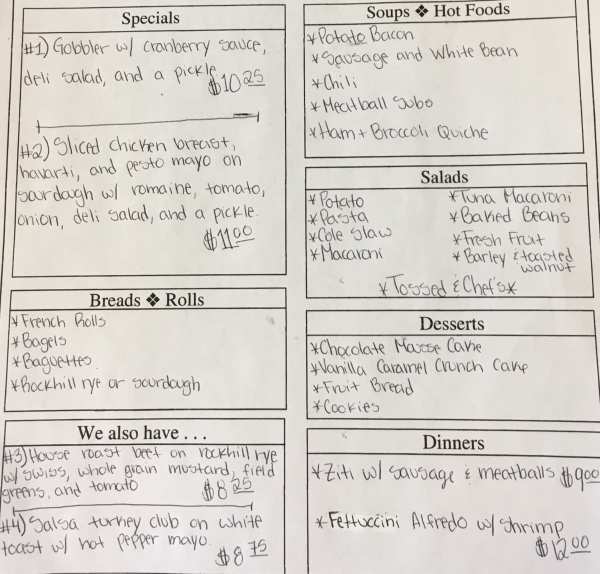 Specials
#1) Gobbler w/ cranberry sauce,
deli salad, and a pickle
$10.25
#2) Sliced chicken breast,
havarti, and pesto mayo on
sourdough w/ romaine, tomato,
onion, deli salad, and a pickle.
$11.00
Breads ❖ Rolls
*French Rolls
*Bagels
*Baguettes
*Rockhill rye or sourdough
We also have . . .
#3) House roast beef on rockhill rye
w/ swiss, whole grain mustard, field
greens, and tomato $8.25
#4) Salsa turkey club on white
toast w/ hot pepper mayo.
$8.75
Soups ❖ Hot Foods
*Potato Bacon
*Sausage and White Bean
*Chili
*Meatball Subo
*Ham + Broccoli Quiche
Salads
*Potato *Tuna Macaroni
*Pasta *Baked Beans
*Cole Slaw *Fresh Fruit
*Macaroni *Barley & toasted
walnut
*Tossed & Chef's*
Desserts
*Chocolate Mousse Cake
*Vanilla Caramel Crunch Cake
*Fruit Bread
*Cookies
Dinners
*Ziti w/ sausage & meatballs $9.00
*Fettuccini Alfredo w/ shrimp
$12.00